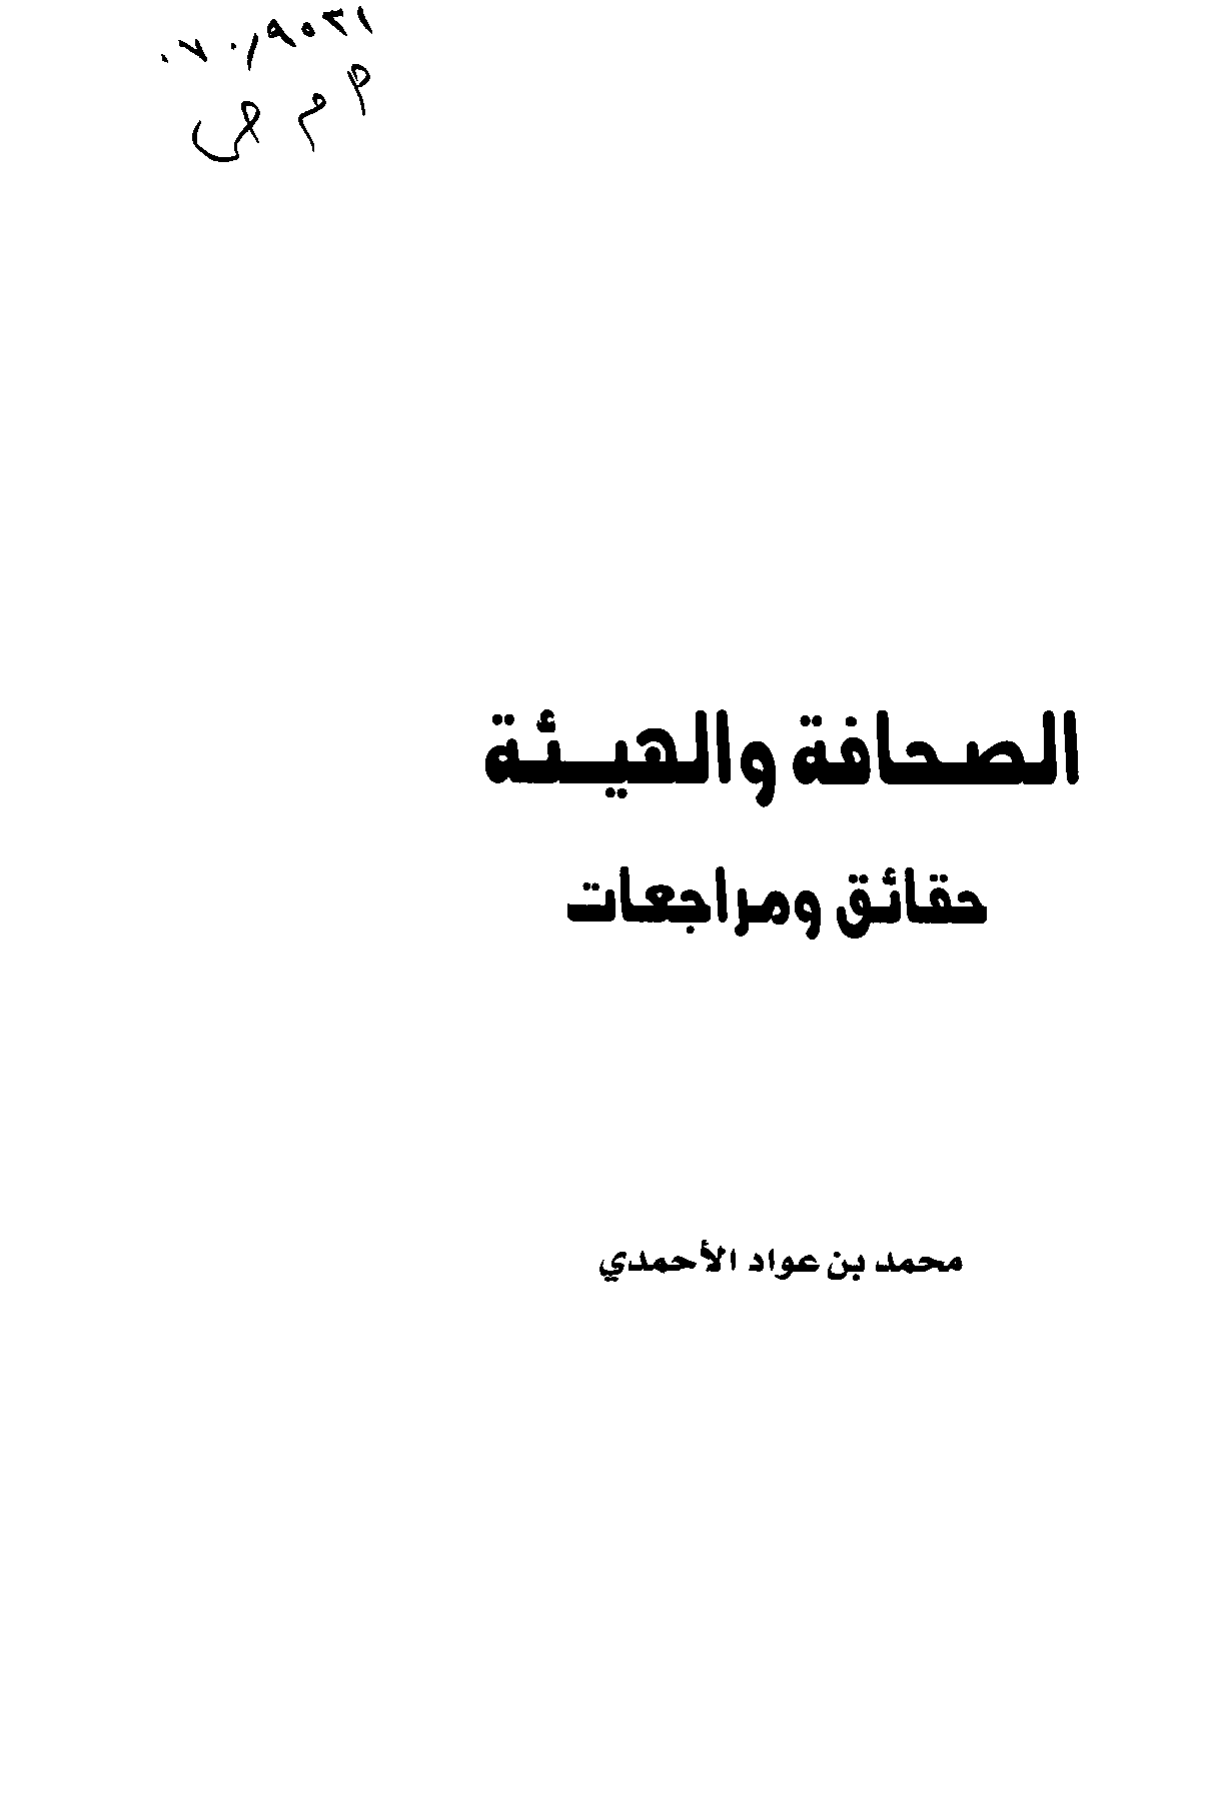 ٠٧٠,٩٥٣١
م م ص
الصحافة والهيئة
حقائق ومراجعات
محمد بن عواد الأحمدي